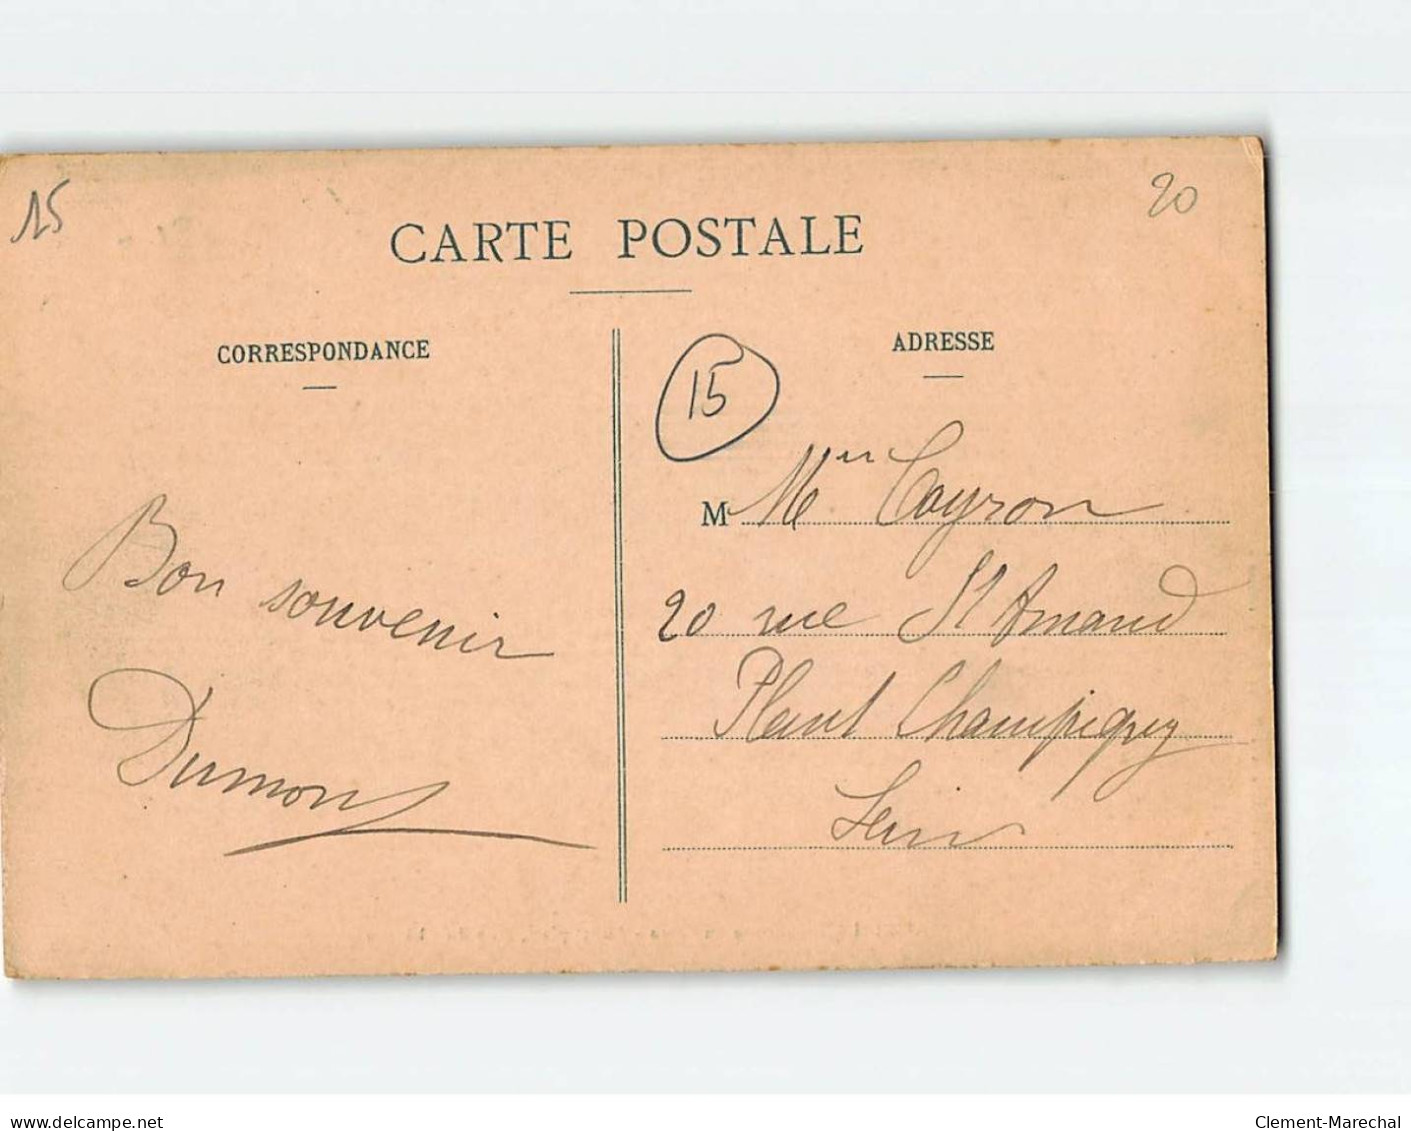 15
20
CARTE POSTALE
CORRESPONDANCE
ADRESSE
15
Bon souvenir
Dumont
M Mme Cayron
20 rue St Amand
Plant Champigny
Seine
www.delcampe.net
Clement-Marechal